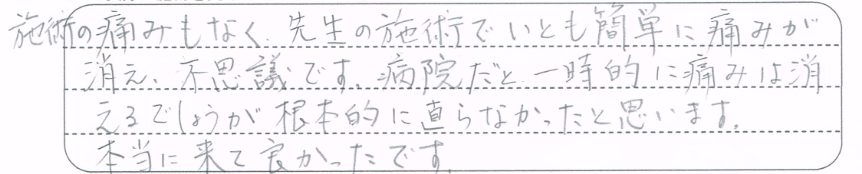 施術の痛みもなく、先生の施術でいとも簡単に痛みが
消え、不思議です。病院だと一時的に痛みは消
えるでしょうが根本的に直らなかったと思います。
本当に来て良かったです。